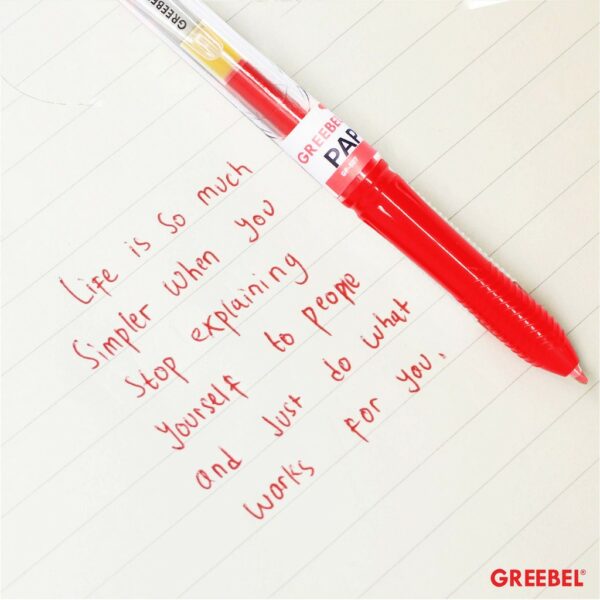 GREEBEL
GREEBEL
PAP
Life is so much
Simpler when you
Stop explaining
Yourself to people
and Just do what
works for you.
GREEBEL®